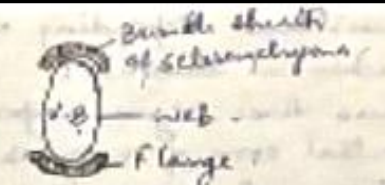 Bundle sheath
of sclerenchyma
V.B
web
Flange